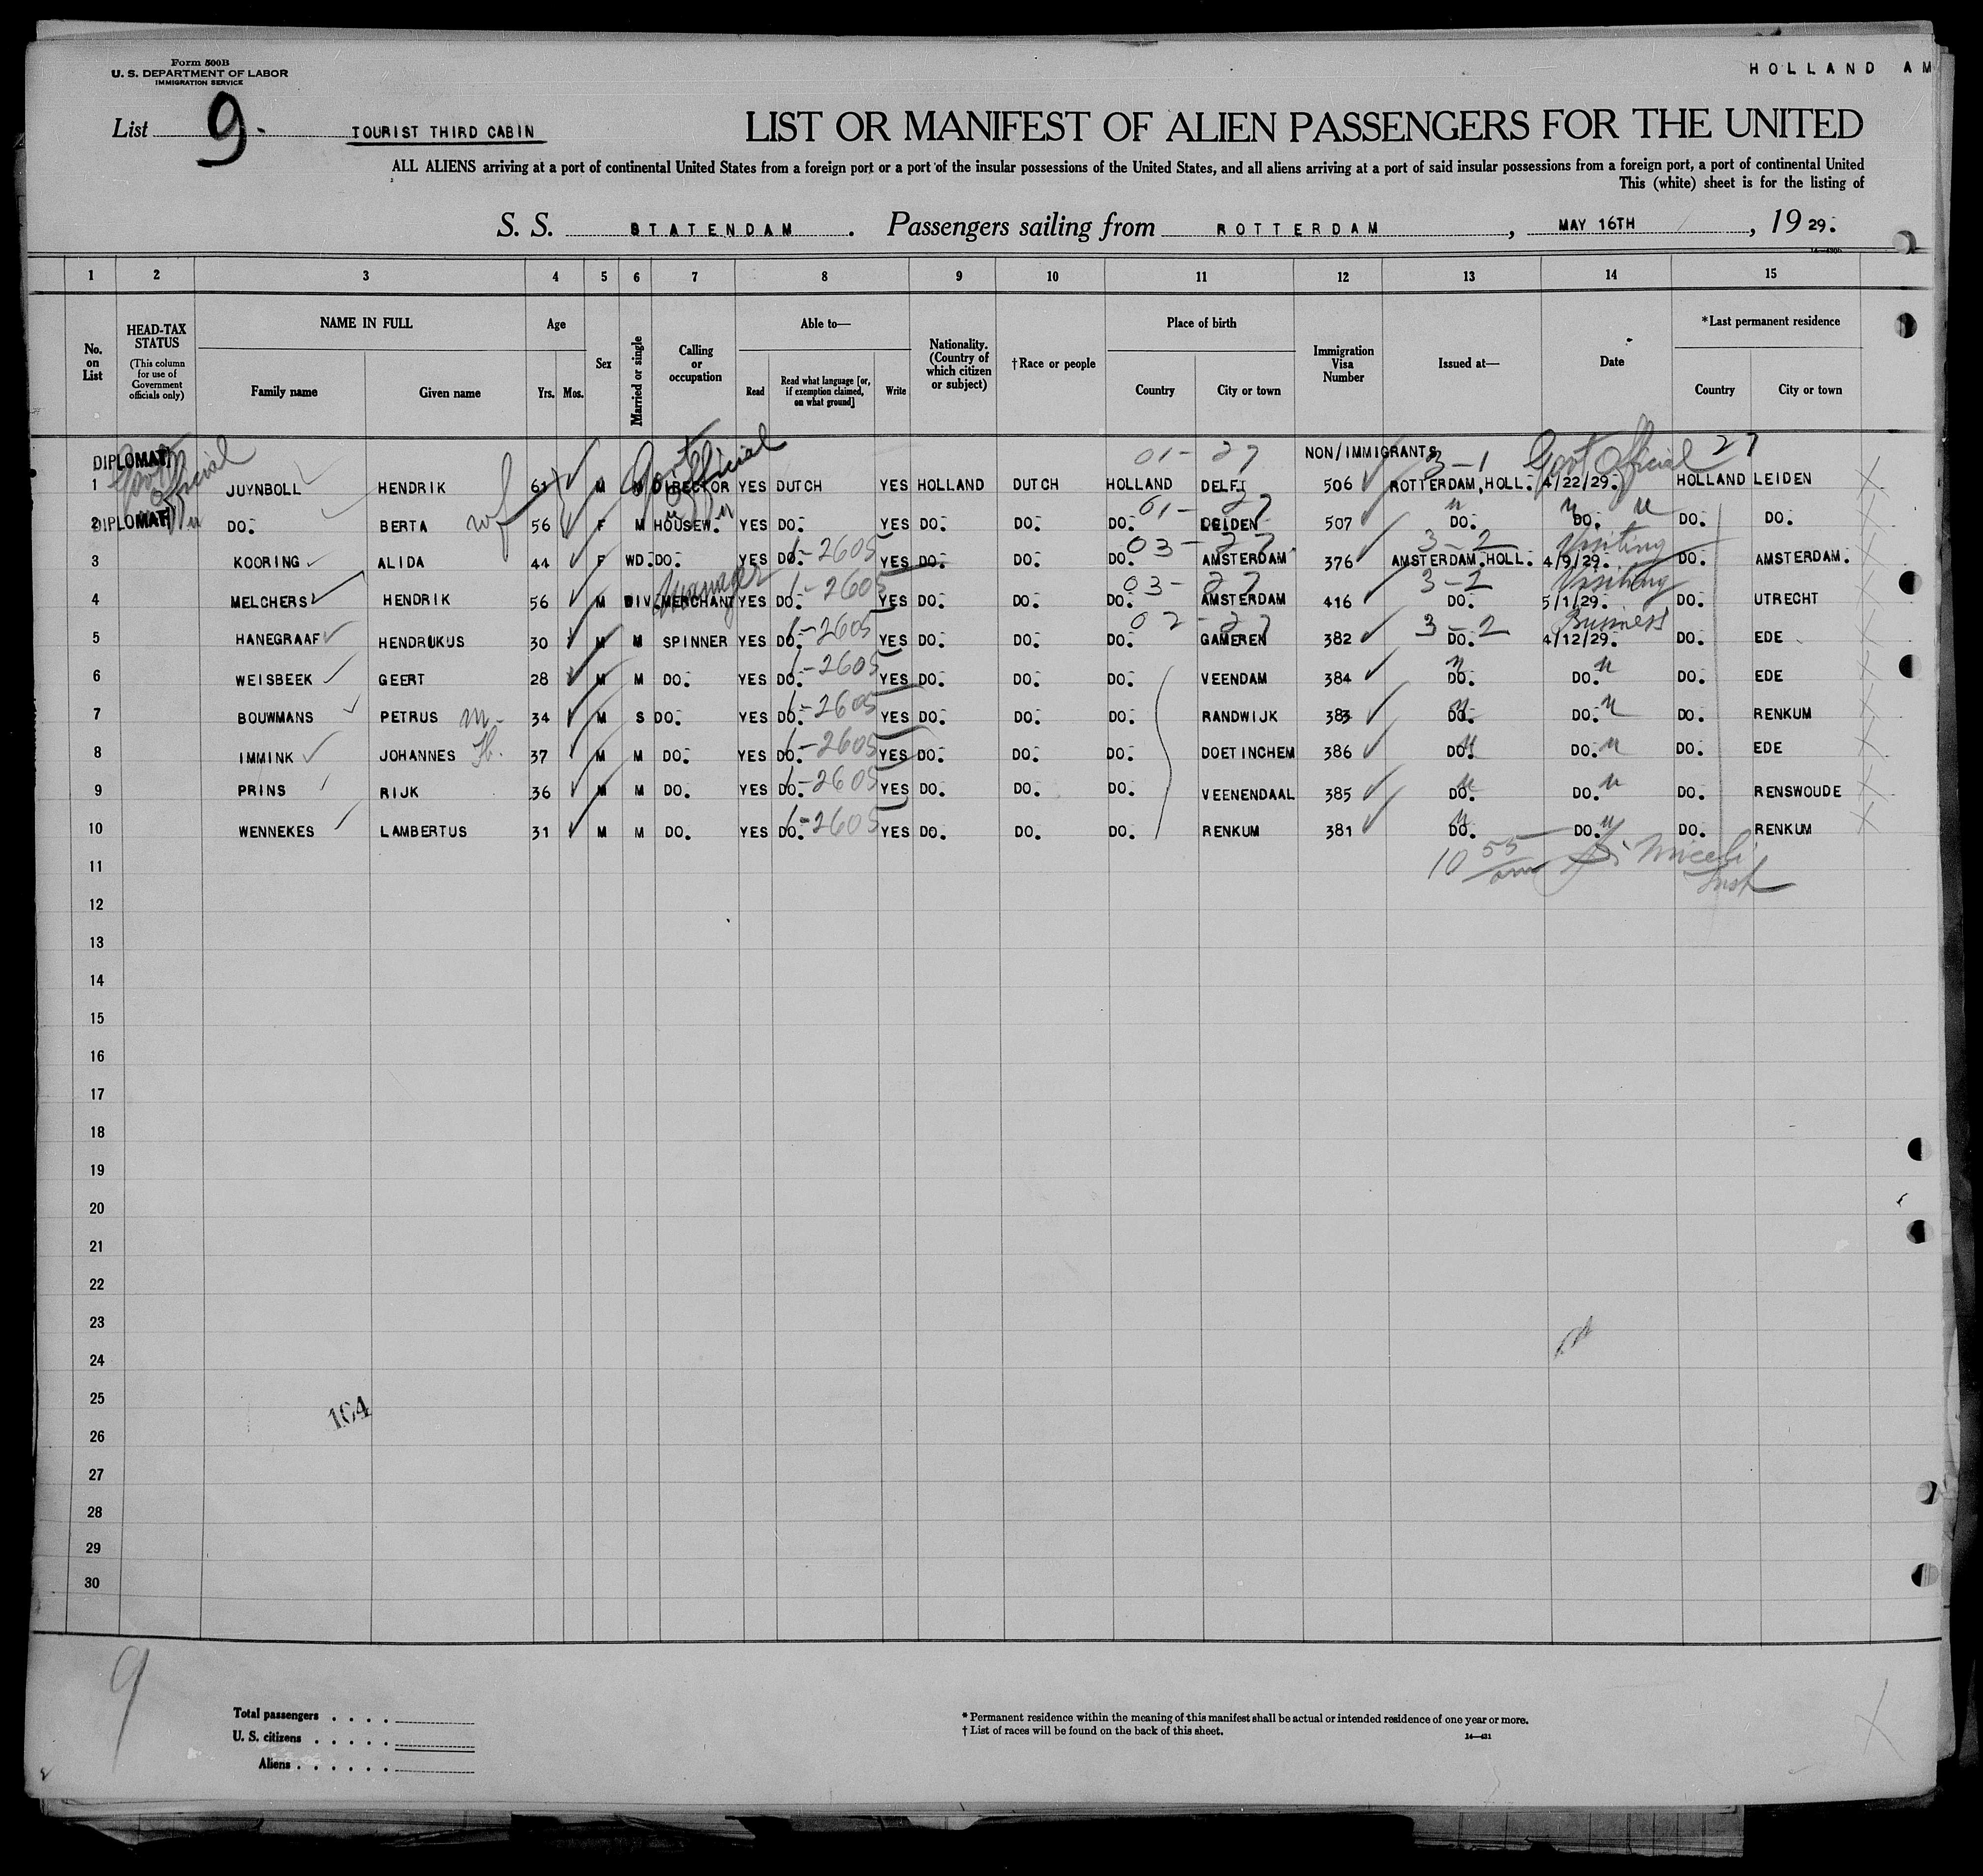 Form 500B
U. S. DEPARTMENT OF LABOR
IMMIGRATION SERVICE
HOLLAND AM
List 9. TOURIST THIRD CABIN
LIST OR MANIFEST OF ALIEN PASSENGERS FOR THE UNITED
ALL ALIENS arriving at a port of continental United States from a foreign port or a port of the insular possessions of the United States, and all aliens arriving at a port of said insular possessions from a foreign port, a port of continental United
This (white) sheet is for the listing of
S. S. STATENDAM. Passengers sailing from ROTTERDAM, MAY 16TH, 1929.
1 2 3 4 5 6 7 8 9 10 11 12 13 14 15
No. on List
HEAD-TAX STATUS (This column for use of Government officials only)
NAME IN FULL Family name Given name
Age Yrs. Mos.
Sex
Married or single
Calling or occupation
Able to— Read Read what language [or, if exemption claimed, on what ground] Write
Nationality. (Country of which citizen or subject)
†Race or people
Place of birth Country City or town
Immigration Visa Number
Issued at—
Date
*Last permanent residence Country City or town
DIPLOMAT Govt Official Govt Official 01-27 NON/IMMIGRANTS 3-1 Govt Official 27
1 JUYNBOLL HENDRIK 61 M M DIRECTOR YES DUTCH YES HOLLAND DUTCH HOLLAND DELFT 506 ROTTERDAM, HOLL. 4/22/29. HOLLAND LEIDEN
01-27
2 DIPLOMAT " DO. BERTA wf 56 F M HOUSEW. YES DO. YES DO. DO. DO. LEIDEN 507 DO. DO. DO. DO.
1-2605 03-27 3-2 Visiting
3 KOORING ALIDA 44 F WD. DO. YES DO. YES DO. DO. DO. AMSTERDAM 376 AMSTERDAM.HOLL. 4/9/29. DO. AMSTERDAM.
Manager 1-2605 03-27 3-2 Visiting
4 MELCHERS HENDRIK 56 M DIV. MERCHANT YES DO. YES DO. DO. DO. AMSTERDAM 416 DO. 5/1/29. DO. UTRECHT
1-2605 02-27 3-2 Business
5 HANEGRAAF HENDRUKUS 30 M M SPINNER YES DO. YES DO. DO. DO. GAMEREN 382 DO. 4/12/29. DO. EDE
1-2605 " "
6 WEISBEEK GEERT 28 M M DO. YES DO. YES DO. DO. DO. VEENDAM 384 DO. DO. DO. EDE
1-2605 " "
7 BOUWMANS PETRUS 34 M S DO. YES DO. YES DO. DO. DO. RANDWIJK 383 DO. DO. DO. RENKUM
1-2605 " "
8 IMMINK JOHANNES 37 M M DO. YES DO. YES DO. DO. DO. DOETINCHEM 386 DO. DO. DO. EDE
1-2605 " "
9 PRINS RIJK 36 M M DO. YES DO. YES DO. DO. DO. VEENENDAAL 385 DO. DO. DO. RENSWOUDE
1-2605 " "
10 WENNEKES LAMBERTUS 31 M M DO. YES DO. YES DO. DO. DO. RENKUM 381 DO. DO. DO. RENKUM
11 10 55 am Insp
12
13
14
15
16
17
18
19
20
21
22
23
24
25
104
26
27
28
29
30
9
Total passengers . . . .
U. S. citizens . . . . .
Aliens . . . . . .
* Permanent residence within the meaning of this manifest shall be actual or intended residence of one year or more.
† List of races will be found on the back of this sheet.
14—431